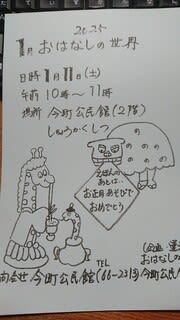 2025
1月おはなしの世界
日時 1月11日(土)
午前 10時～11時
場所 今町公民館(2階)
しゅうかくしつ
えほんの
あとは…
お正月あそびで
おめでとう
おはなしの
TEL
合せ 今町公民館(66-2213)今町公民